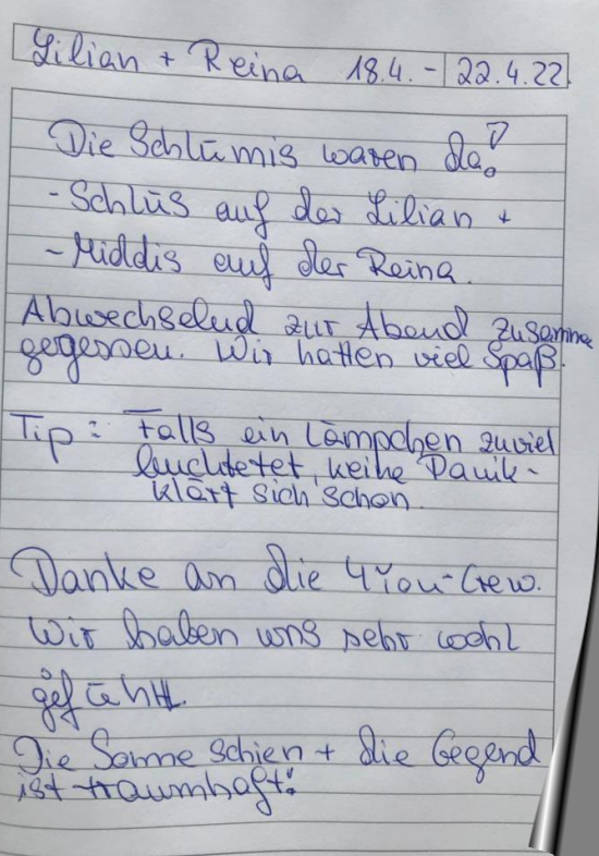 Lilian + Reina 18.4. - 22.4.22.
Die Schlümis waren da!
- Schlüs auf der Lilian +
- Middis auf der Reina.
Abwechselnd zur Abend zusamme
gegessen. Wir hatten viel Spaß.
Tip: Falls ein Lämpchen zuviel
leuchtetet, keine Panik -
klärt sich schon.
Danke an die 4You-Crew.
Wir haben uns sehr wohl
gefühlt.
Die Sonne schien + die Gegend
ist traumhaft!